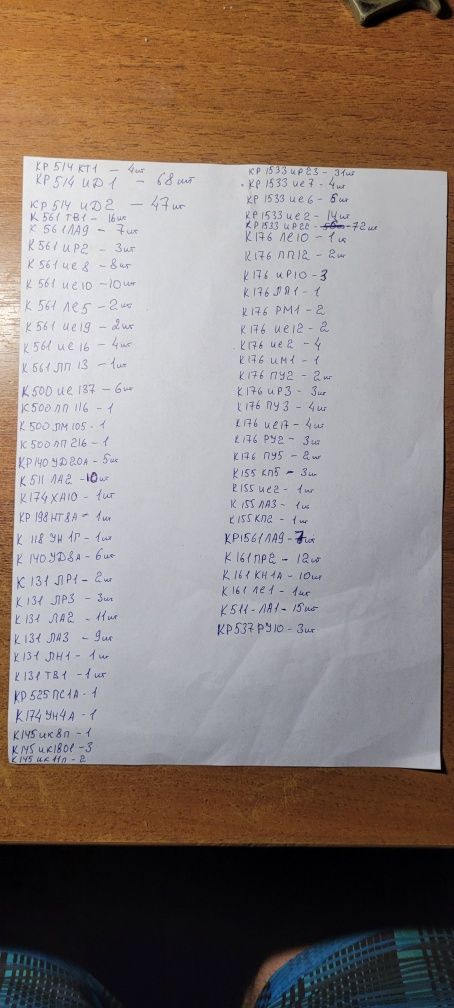 КР 514 КТ1 – 4шт
КР 514 ИД1 – 68 шт
КР 514 ИД2 – 47шт
К 561 ТВ1 – 16шт
К 561 ЛА9 – 7шт
К 561 ИР2 – 3шт
К 561 ИЕ8 – 8шт
К 561 ИЕ10 – 10шт
К 561 ЛЕ5 – 2шт
К 561 ИЕ19 – 2шт
К 561 ИЕ16 – 4шт
К 561 ЛП 13 – 1шт
К500 ИЕ 137 – 6шт
К500 ЛП 116 – 1
К 500 ЛМ 105 - 1
К 500 ЛП 216 – 1
КР140 УД20А – 5шт
К 511 ЛА2 – 10шт
К174 ХА10 – 1шт
КР 198НТ8А – 1шт
К 118 УН 1Г – 1шт
К 140УД8А – 6шт
К 131 ЛР1 – 2шт
К 131 ЛР3 – 3шт
К 131 ЛА2 – 11шт
К 131 ЛА3 – 9шт
К131 ЛН1 – 1шт
К131 ТВ1 – 1шт
КР 525 ПС1А – 1
К174УН4А – 1
К145 ИК8П – 1
К145 ИК1801 – 3
К145 ИК 11П – 2
КР 1533 ИР23 – 31шт
КР 1533 ИЕ7 – 4шт
КР 1533 ИЕ6 – 6шт
КР 1533 ИЕ2 – 14шт
КР 1533 ИР22 – 72шт
К176 ЛЕ10 – 1шт
К176 ЛП12 – 2шт
К176 ИР10 – 3
К176 ЛЯ1 – 1
К176 РМ1 – 2
К176 ИЕ12 – 2
К176 ИЕ2 – 4
К176 ИМ1 – 1
К176 ПУ2 – 2шт
К176 ИР3 – 3шт
К176 ПУ3 – 4шт
К176 ИЕ17 – 4шт
К176 РУ2 – 3шт
К176 ПУ5 – 2шт
К155 КП5 – 3шт
К155 ИЕ2 – 1шт
К155 ЛА3 – 1шт
К155КП2 – 1шт
КР1561ЛА9 – 7шт
К161ПР2 – 12шт
К161 КН1А – 10шт
К161 ЛЕ1 – 1шт
К511 - ЛА1 – 15шт
КР537РУ10 – 3шт